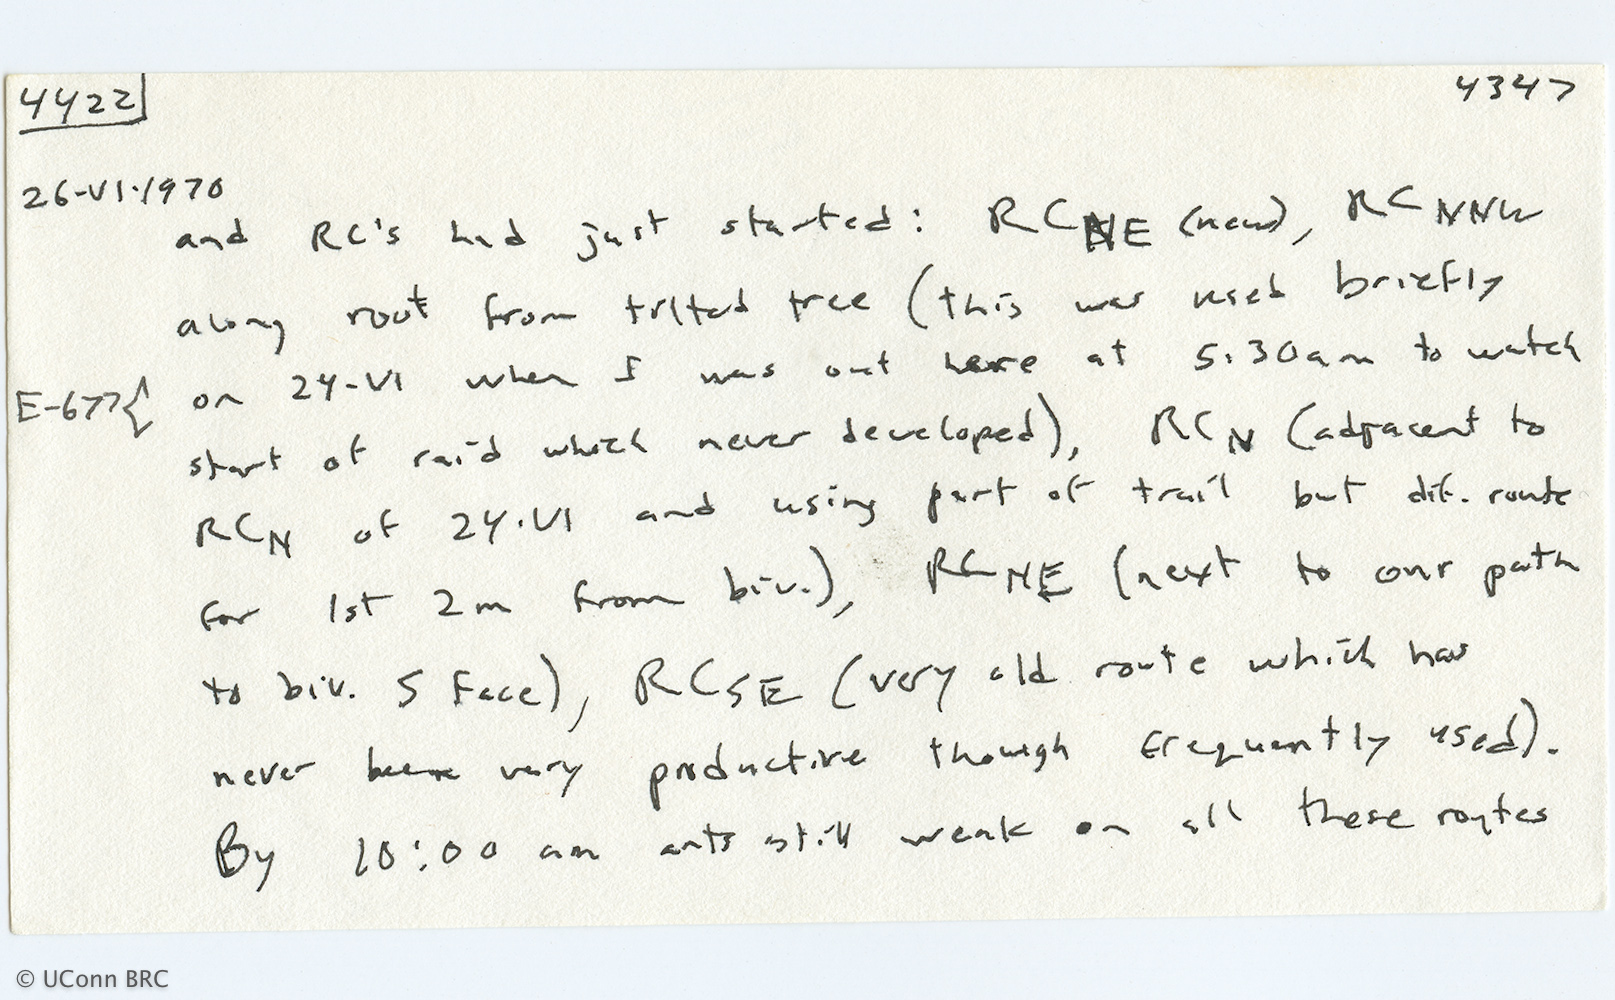 4422
4347
26-VI-1970
and RC's had just started: RCNE (new), RCNNW
along root from tilted tree (this was used briefly
E-677{ on 24-VI when I was out here at 5:30am to watch
start of raid which never developed), RCN (adjacent to
RCN of 24-VI and using part of trail but dif. route
for 1st 2m from biv.), RCNE (next to our path
to biv. S Face), RCSE (very old route which has
never been very productive though frequently used).
By 10:00 am ants still weak on all these routes
© UConn BRC